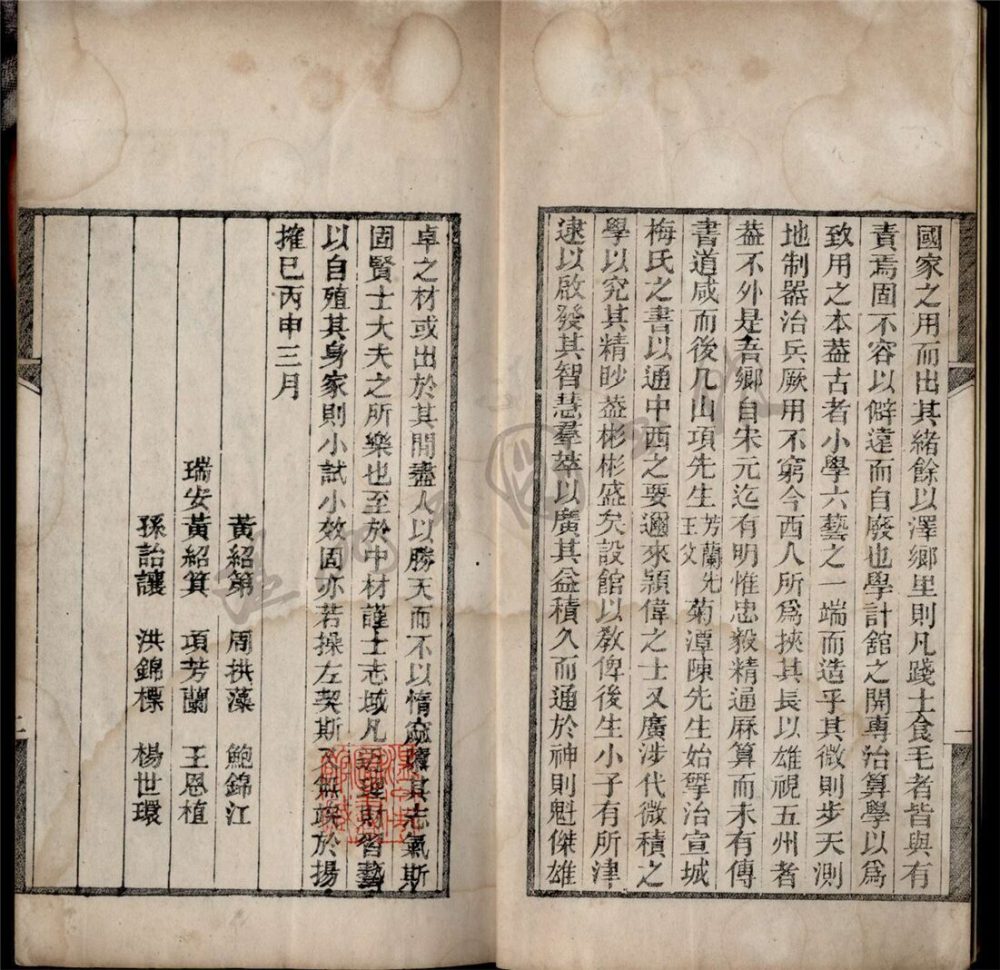 國家之用而出其緒餘以澤鄉里則凡踐土食毛者皆與有
責焉固不容以僻遠而自廢也學計館之開專治算學以爲
致用之本葢古者小學六藝之一端而造乎其微則步天測
地制器治兵厥用不窮今西人所爲挾其長以雄視五州者
葢不外是吾鄉自宋元迄有明惟忠毅精通厤算而未有傳
書道咸而後几山項先生芳蘭先王父菊潭陳先生始鞏治宣城
梅氏之書以通中西之要邇來穎偉之士又廣涉代微積之
學以究其精眇葢彬彬盛矣設館以敎俾後生小子有所津
逮以啟發其智慧羣萃以廣其益積久而通於神則魁傑雄
卓之材或出於其閒盡人以勝天而不以惰窳隳其志氣斯
固賢士大夫之所樂也至於中材謹士志域凡近理財習藝
以自殖其身家則小試小效固亦若操左契斯又無竢於揚
搉已丙申三月
黃紹第 周拱藻 鮑錦江
瑞安黃紹箕 項芳蘭 王恩植
孫詒讓 洪錦標 楊世環